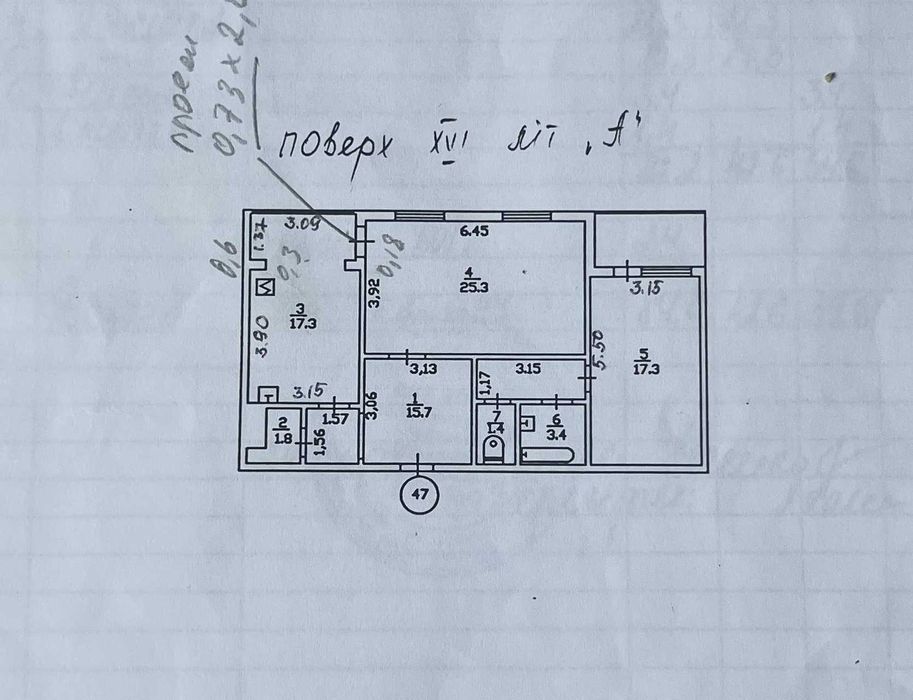 проем
0,73 x 2,
поверх XVI літ „А"
3.09
6.45
1.37
0,6
0,3
0,18
4
25.3
3,92
3.15
3
17.3
3.90
5
17.3
5.50
3,13
3.15
1,17
3.15
3,06
1
15.7
1.57
2
1.8
1,56
7
1.4
6
3.4
47